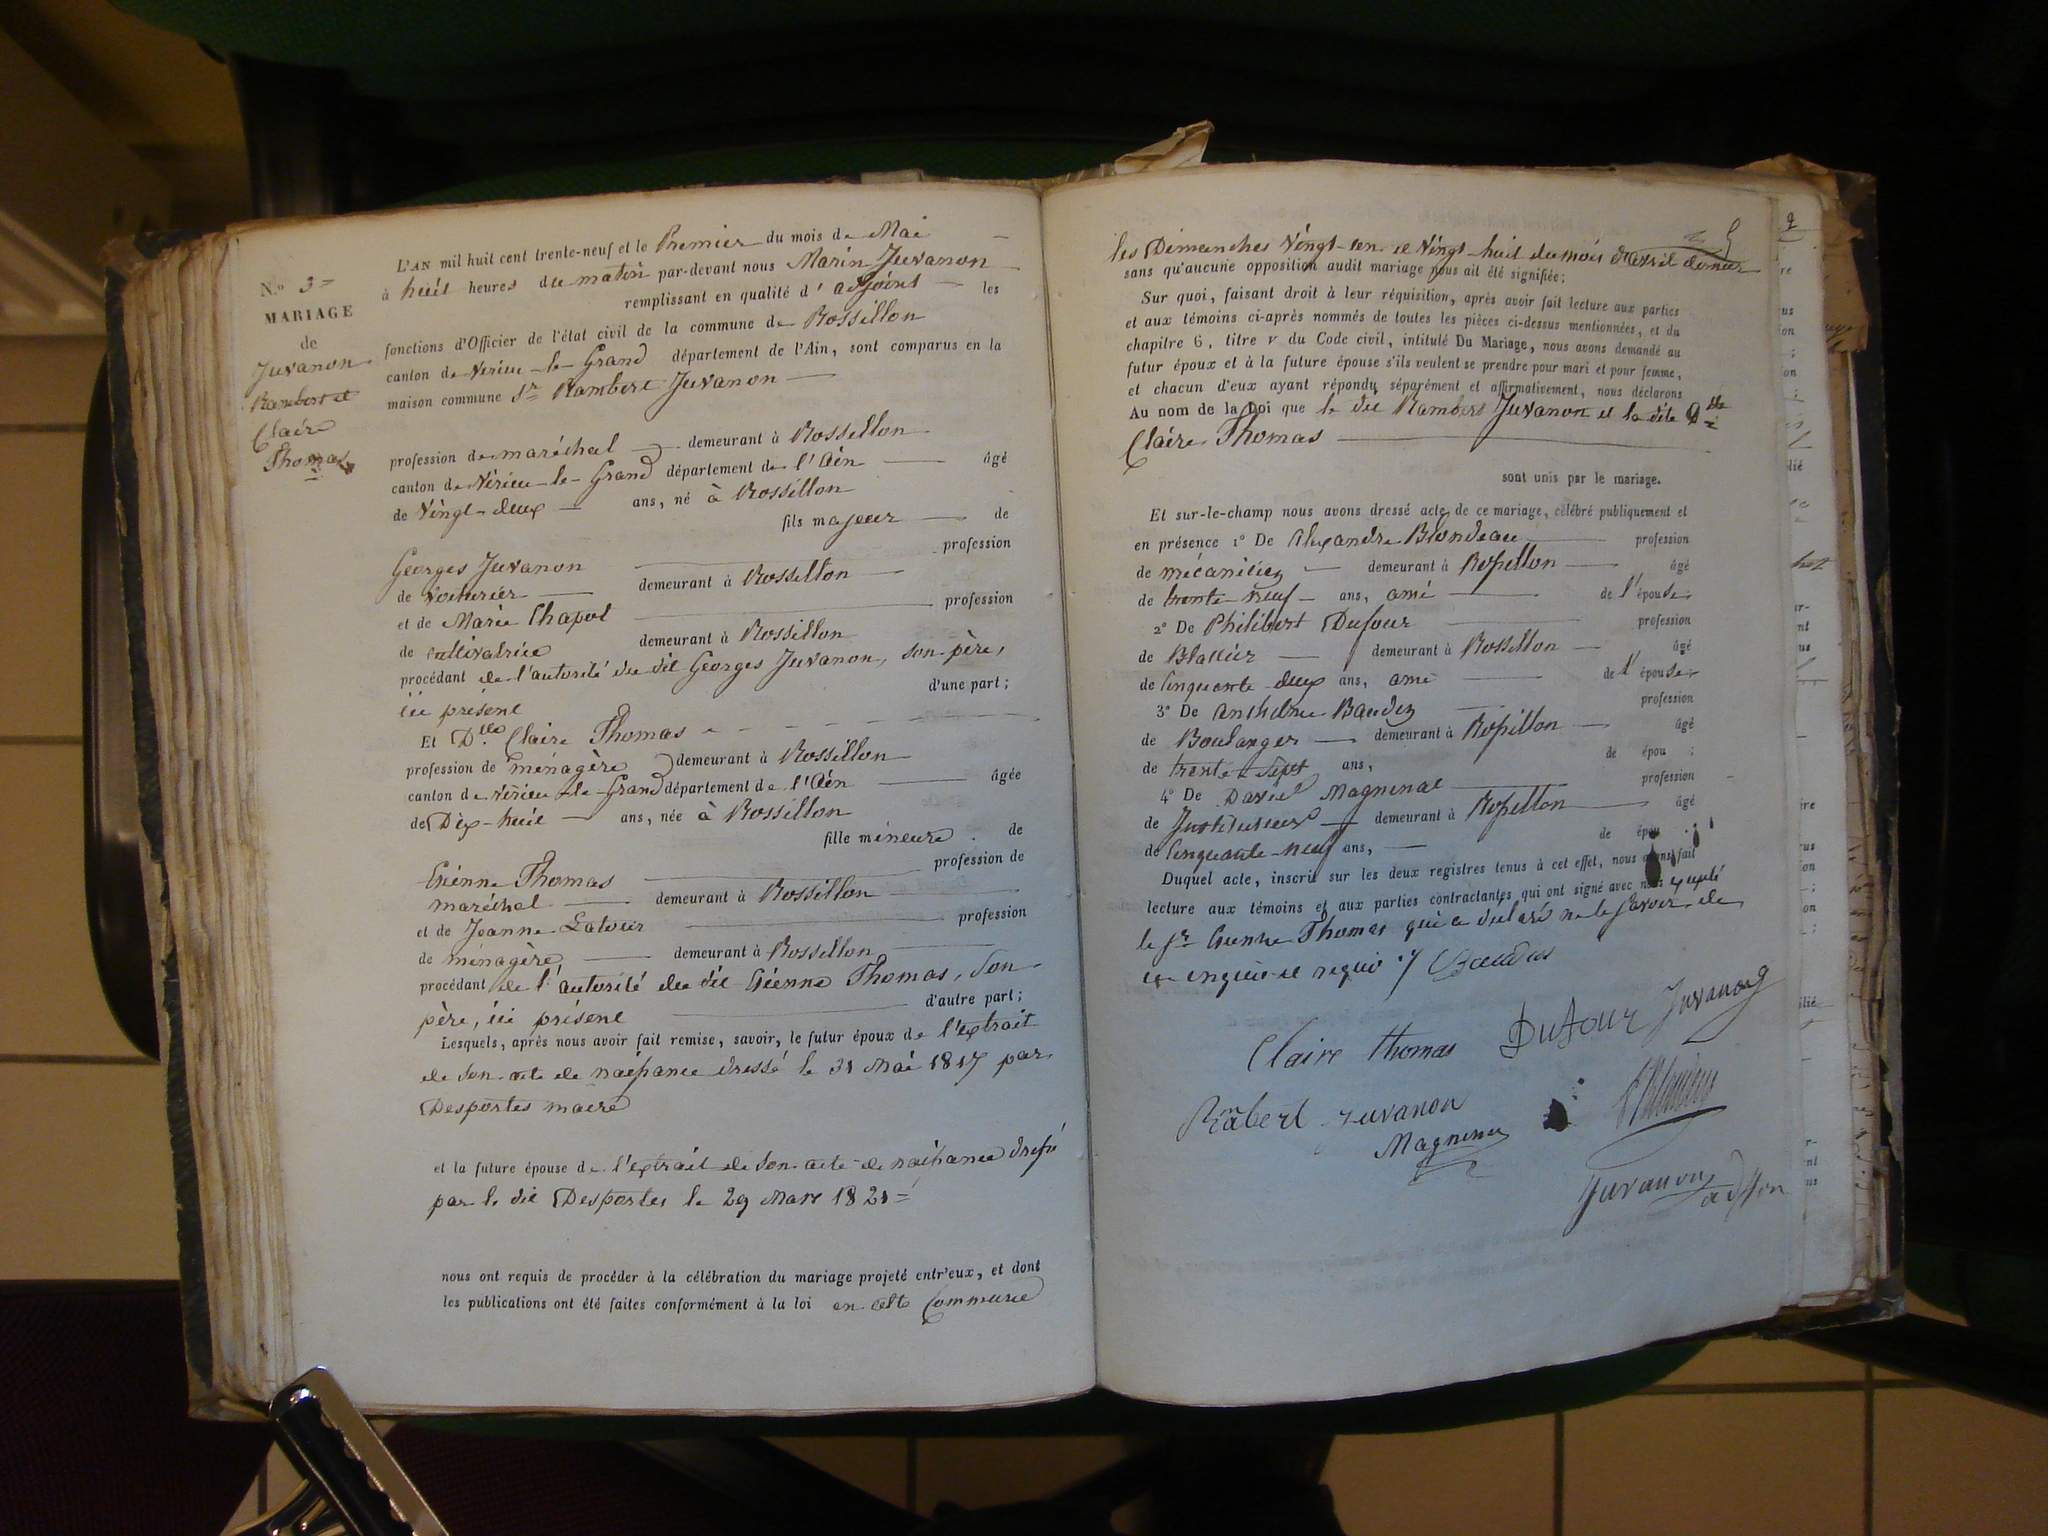 N.o 3
MARIAGE
de
Juvanon
Rambert et
Claire
Thomas
L'AN mil huit cent trente-neuf et le Premier du mois de Mai
à huit heures du matin par-devant nous Marin Juvanon
remplissant en qualité d' adjoint les
fonctions d'Officier de l'état civil de la commune de Rossillon
canton de Virieu-le-Grand département de l'Ain, sont comparus en la
maison commune Sr Rambert Juvanon
profession de maréchal demeurant à Rossillon
canton de Virieu-le-Grand département de l'Ain âgé
de Vingt-deux ans, né à Rossillon
fils majeur de
Georges Juvanon profession
de Voiturier demeurant à Rossillon
et de Marie Chapot profession
de cultivatrice demeurant à Rossillon
procédant de l'autorité du dit Georges Juvanon, son père,
ici présent d'une part;
Et Dlle Claire Thomas
profession de ménagère demeurant à Rossillon
canton de Virieu-le-Grand département de l'Ain âgée
de Dix-huit ans, née à Rossillon
fille mineure de
Etienne Thomas profession de
maréchal demeurant à Rossillon
et de Jeanne Latour profession
de ménagère demeurant à Rossillon
procédant de l'autorité du dit Etienne Thomas, son
père, ici présent d'autre part;
Lesquels, après nous avoir fait remise, savoir, le futur époux de l'extrait
de son acte de naissance dressé le 31 Mai 1817 par
Desportes maire
et la future épouse de l'extrait de son acte de naissance dressé
par le dit Desportes le 29 Mars 1821
nous ont requis de procéder à la célébration du mariage projeté entr'eux, et dont
les publications ont été faites conformément à la loi en cette Commune
les Dimanches Vingt-un et Vingt-huit du mois d'Avril dernier
sans qu'aucune opposition audit mariage nous ait été signifiée;
Sur quoi, faisant droit à leur réquisition, après avoir fait lecture aux parties
et aux témoins ci-après nommés de toutes les pièces ci-dessus mentionnées, et du
chapitre 6, titre v du Code civil, intitulé Du Mariage, nous avons demandé au
futur époux et à la future épouse s'ils veulent se prendre pour mari et pour femme,
et chacun d'eux ayant répondu séparément et affirmativement, nous déclarons
Au nom de la Loi que le dit Rambert Juvanon et la dite Dlle
Claire Thomas
sont unis par le mariage.
Et sur-le-champ nous avons dressé acte de ce mariage, célébré publiquement et
en présence 1° De Alexandre Blondeau profession
de mécanicien demeurant à Rossillon âgé
de trente-neuf ans, ami de l'épouse
2° De Philibert Dufour profession
de Blattier demeurant à Rossillon âgé
de Cinquante-deux ans, ami de l'épouse
3° De Anthelme Baudin profession
de Boulanger demeurant à Rossillon âgé
de trente-sept ans, de épou ;
4° De David Magninat profession
de Instituteur demeurant à Rossillon âgé
de Cinquante-neuf ans, de épou
Duquel acte, inscrit sur les deux registres tenus à cet effet, nous avons fait
lecture aux témoins et aux parties contractantes qui ont signé avec nous excepté
le Sr Etienne Thomas qui a déclaré ne le savoir de
ce enquis et requis
Claire Thomas Dufour Juvanon
Rambert Juvanon
Magninat
Juvanon adjoint